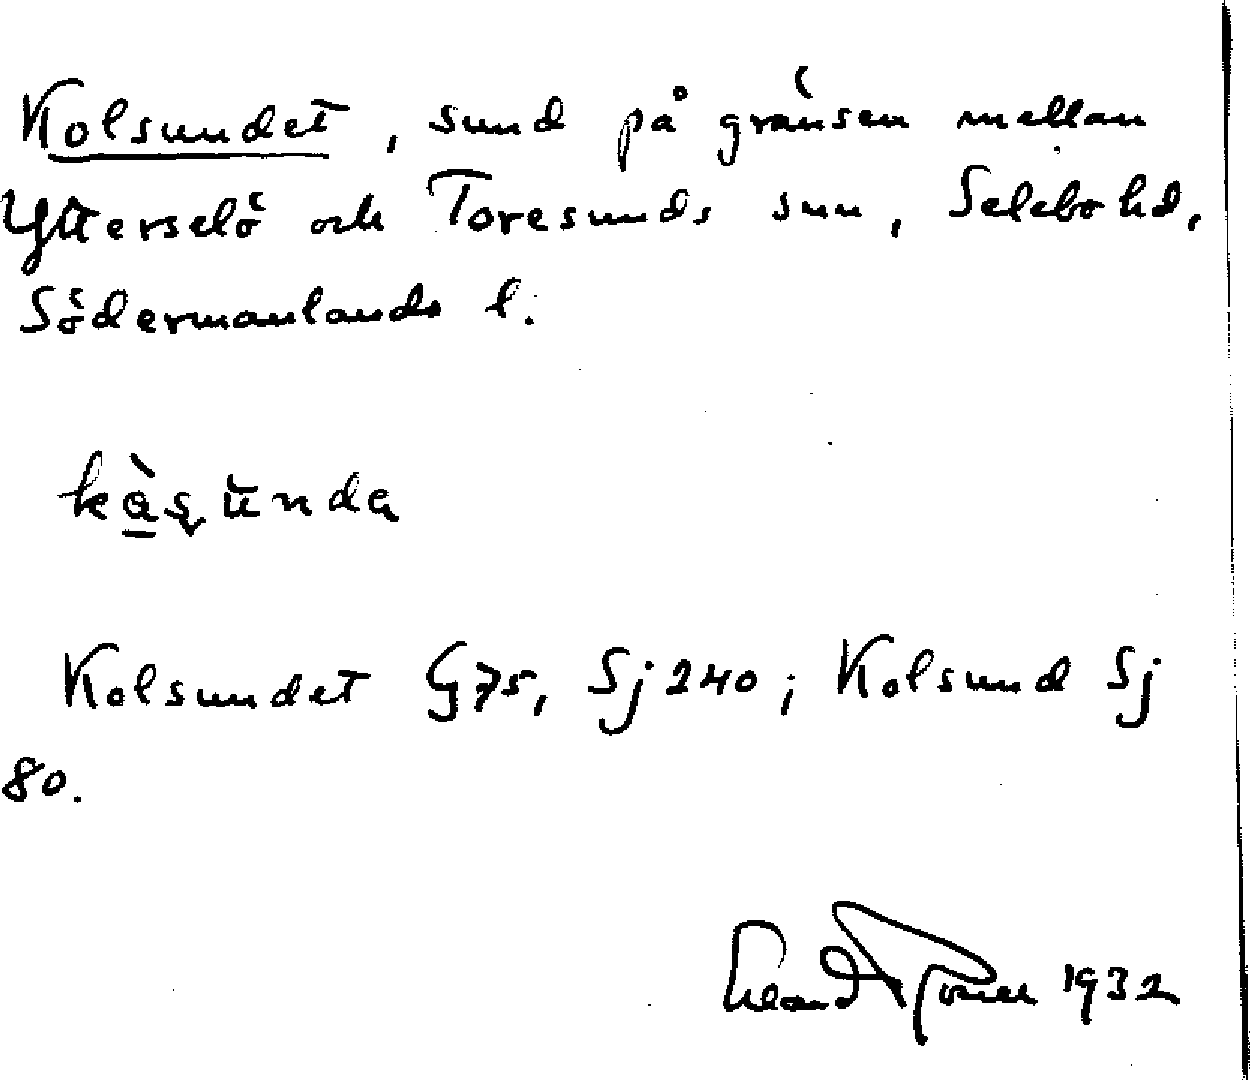 Kolsundet, sund på gränsen mellan
Ytterselö och Toresunds snn, Selebo hd,
Södermanlands l.
kà̱sŭnda
Kolsundet G75, Sj 240; Kolsund Sj
80.
1932